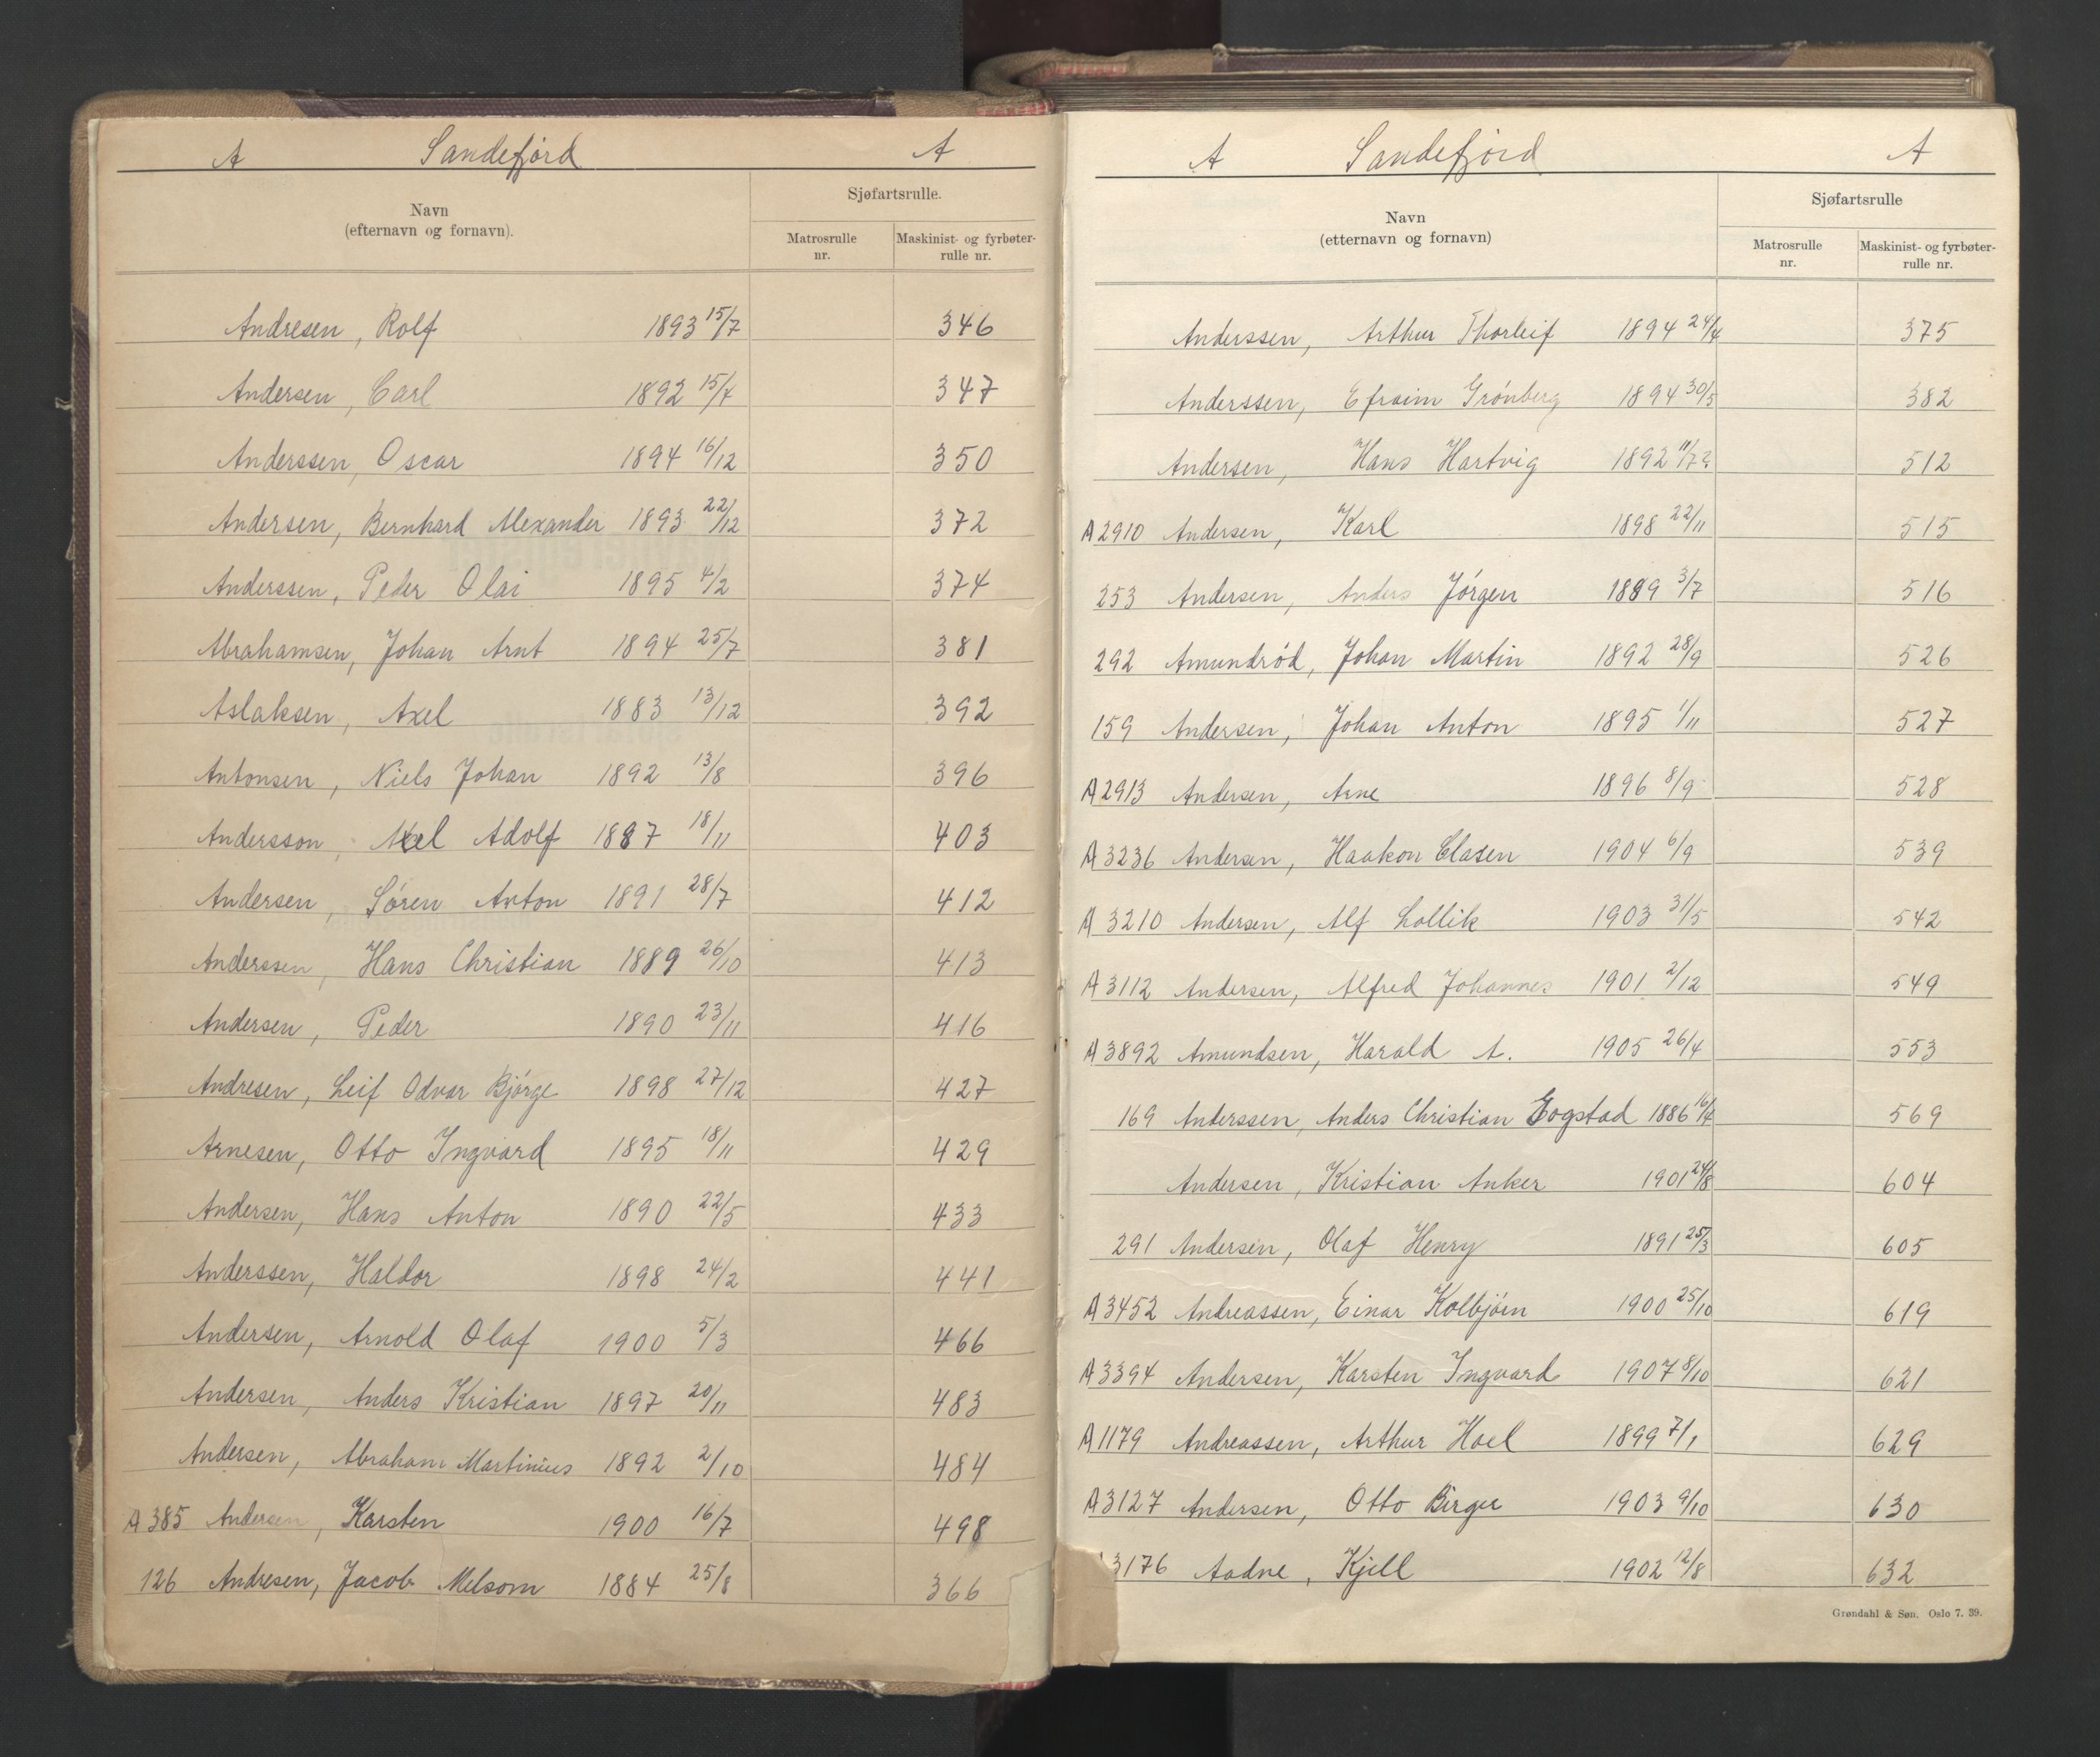 A Sandefjord A
Sjøfartsrulle.
Navn
(efternavn og fornavn).
Matrosrulle nr.
Maskinist- og fyrbøter-rulle nr.
Andresen, Rolf 1893 15/7 346
Andersen, Carl 1892 15/7 347
Anderssen, Oscar 1894 16/12 350
Andersen, Bernhard Alexander 1893 22/12 372
Anderssen, Peder Olai 1895 4/2 374
Abrahamsen, Johan Arnt 1894 25/7 381
Aslaksen, Axel 1883 13/12 392
Antonsen, Niels Johan 1892 13/8 396
Andersson, Axel Adolf 1887 18/11 403
Andersen, Søren Anton 1891 28/7 412
Anderssen, Hans Christian 1889 26/10 413
Andersen, Peder 1890 23/11 416
Andresen, Leif Odvar Bjørge 1898 27/12 427
Arnesen, Otto Ingvard 1895 18/11 429
Andersen, Hans Anton 1890 22/5 433
Anderssen, Haldor 1898 24/2 441
Andersen, Arnold Olaf 1900 5/3 466
Andersen, Anders Kristian 1897 20/11 483
Andersen, Abraham Martinius 1892 2/10 484
A 385 Andersen, Karsten 1900 16/7 498
126 Andresen, Jacob Melsom 1884 25/8 366
A Sandefjord A
Sjøfartsrulle
Navn
(etternavn og fornavn)
Matrosrulle nr.
Maskinist- og fyrbøter-rulle nr.
Anderssen, Arthur Thorleif 1894 24/4 375
Anderssen, Efraim Grönberg 1894 30/5 382
Andersen, Hans Hartvig 1892 11/7? 512
A 2910 Andersen, Karl 1898 22/11 515
253 Andersen, Anders Jörgen 1889 3/7 516
292 Amundröd, Johan Martin 1892 28/9 526
159 Andersen, Johan Anton 1895 1/11 527
A 2913 Andersen, Arne 1896 8/9 528
A 3236 Andersen, Haakon Clasen 1904 6/9 539
A 3210 Andersen, Alf Lollik 1903 31/5 542
A 3112 Andersen, Alfred Johannes 1901 2/12 549
A 3892 Amundsen, Harald A. 1905 26/4 553
169 Anderssen, Anders Christian 1886 16/4 569
Andersen, Kristian Anker 1901 24/8 604
291 Andersen, Olaf Henry 1891 25/3 605
A 3452 Andreassen, Einar Kolbjörn 1900 25/10 619
A 3394 Andersen, Karsten Ingvard 1907 8/10 621
A 1179 Andreassen, Arthur Hoel 1899 7/1 629
A 3127 Andersen, Otto Birger 1903 9/10 630
3176 Aadne, Kjell 1902 12/8 632
Grøndahl & Søn, Oslo 7. 39.